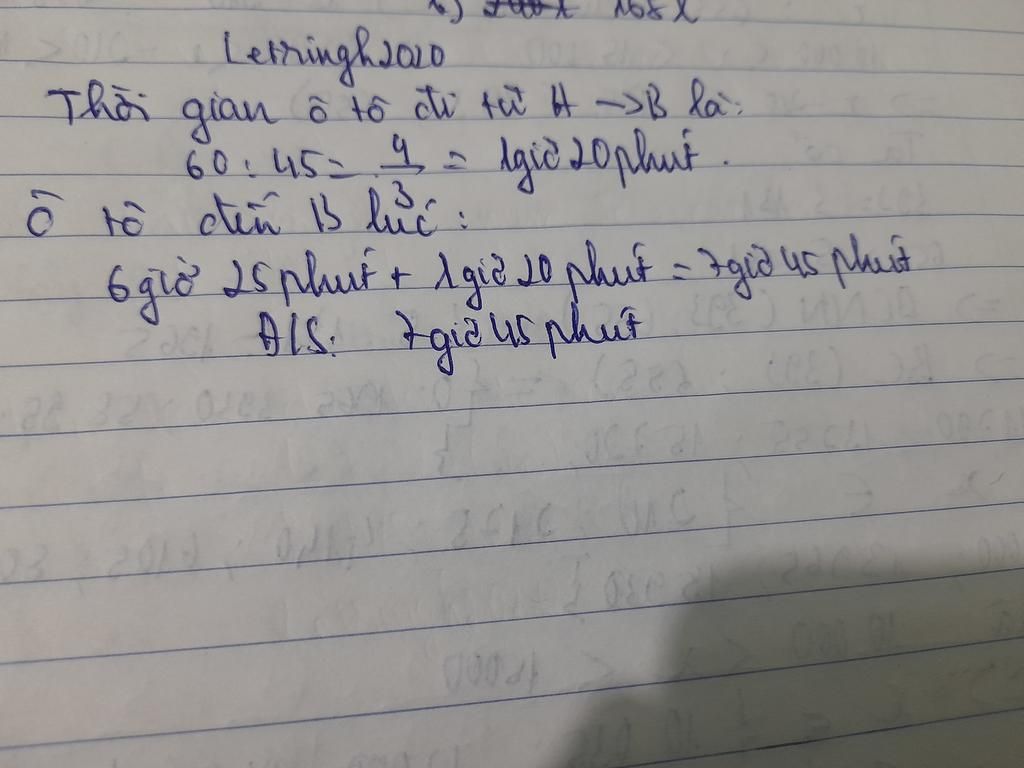 168 L
Letringh2020
Thời gian ô tô đi từ A → B là:
60 : 45 = 4/3 = 1giờ 20phút.
Ô tô đến B lúc:
6giờ 25phút + 1giờ 20phút = 7giờ 45phút
Đ/S: 7giờ 45phút